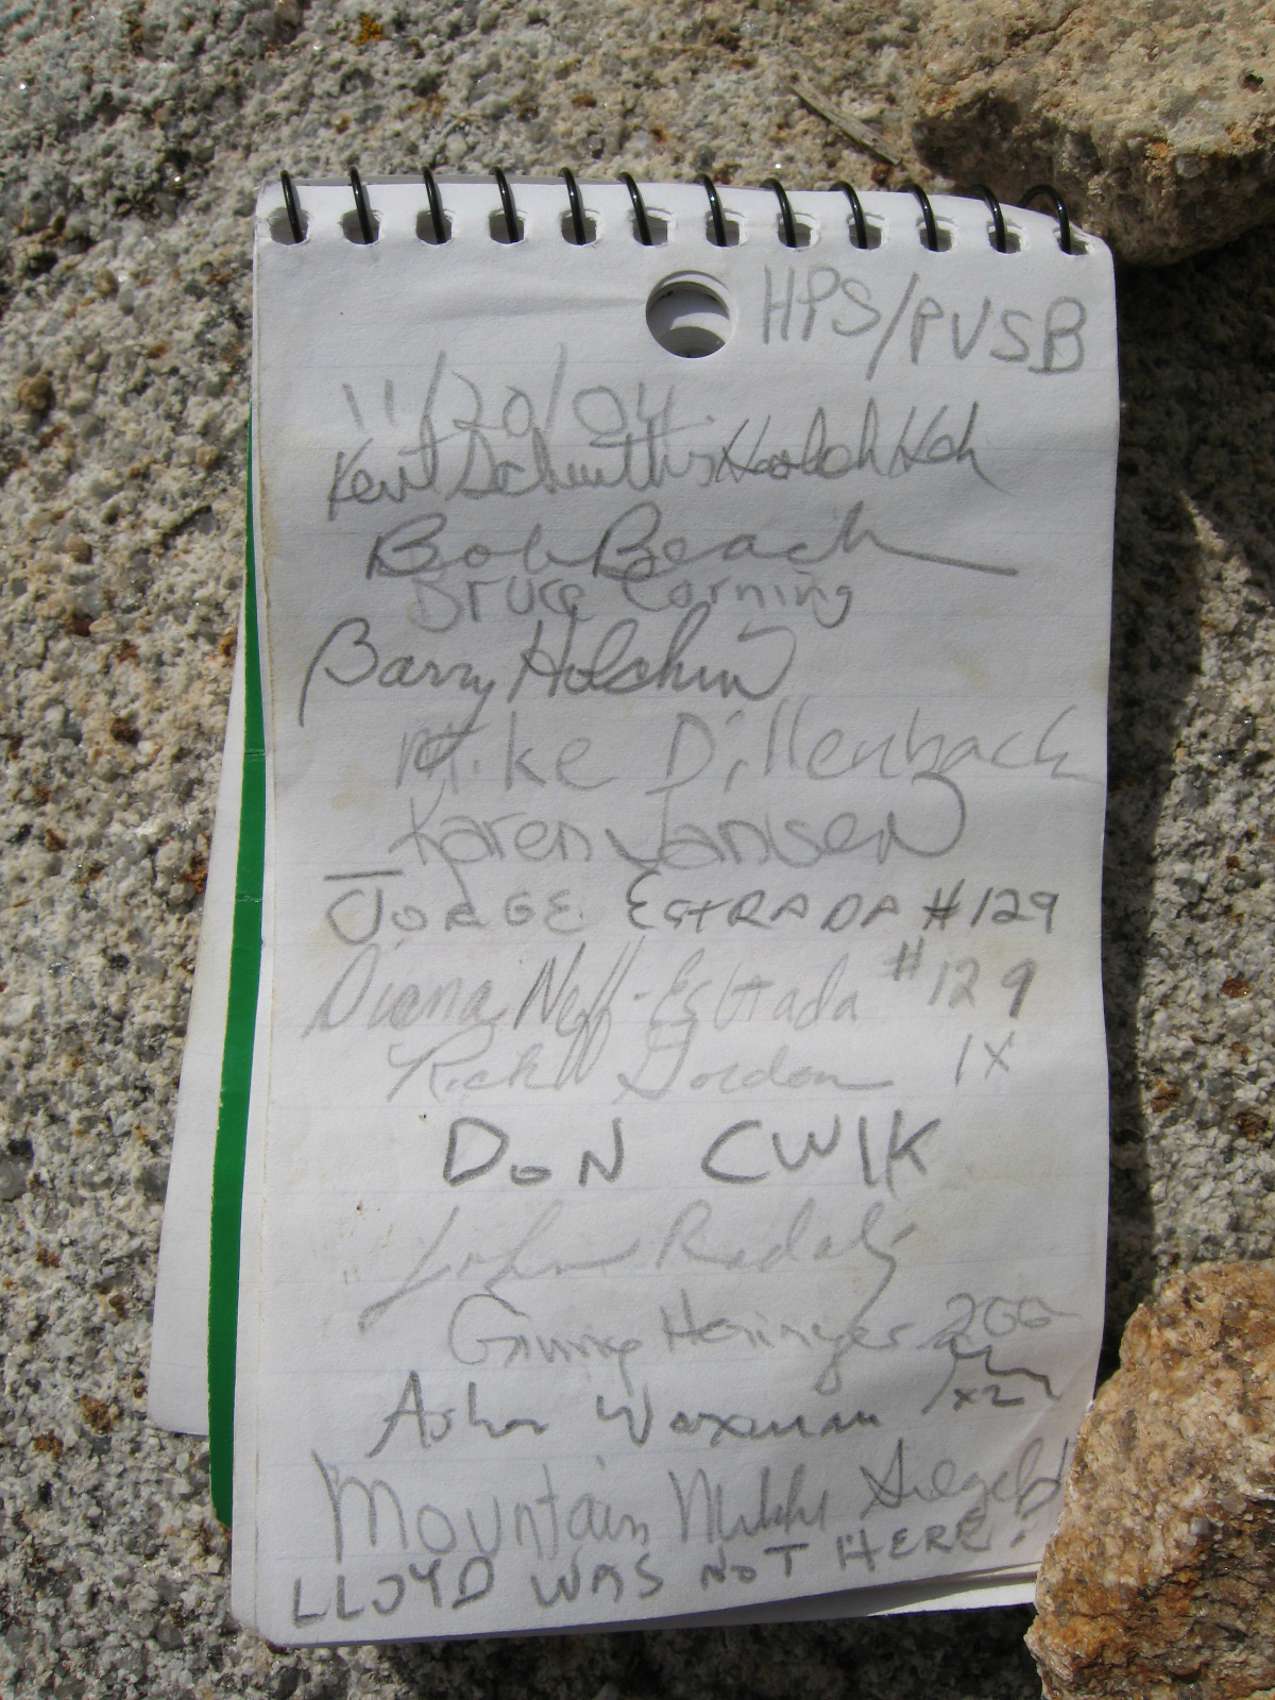 HPS/PVSB
11/20/04
Kent Schwitkis
Bob Beach
Bruce Corning
Barry Holchin
Mike Dillenback
Karen Jansen
JORGE ESTRADA #129
Diana Neff-Estrada #129
Rich Gordon 1X
DON CWIK
John Radalj
Heringer 200
Asher Waxman x2
Mountain Siegel
LLOYD WAS NOT HERE!